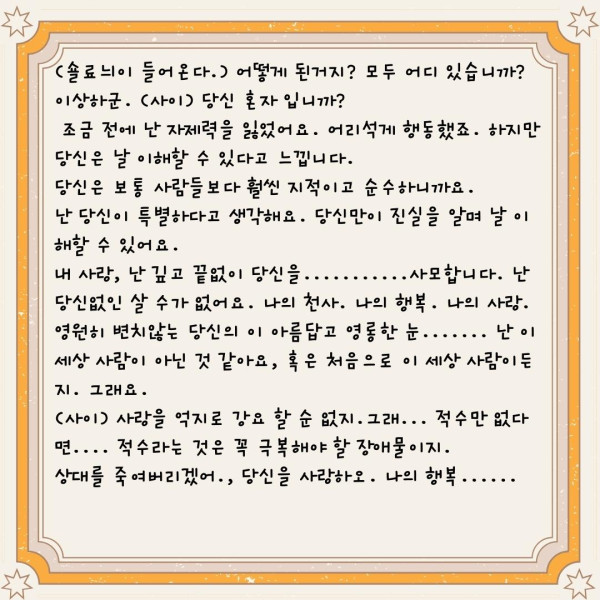 (숄료늬이 들어온다.) 어떻게 된거지? 모두 어디 있습니까?
이상하군. (사이) 당신 혼자 입니까?
조금 전에 난 자제력을 잃었어요. 어리석게 행동했죠. 하지만
당신은 날 이해할 수 있다고 느낍니다.
당신은 보통 사람들보다 훨씬 지적이고 순수하니까요.
난 당신이 특별하다고 생각해요. 당신만이 진실을 알며 날 이
해할 수 있어요.
내 사랑, 난 깊고 끝없이 당신을...........사모합니다. 난
당신없인 살 수가 없어요. 나의 천사. 나의 행복. 나의 사랑.
영원히 변치않는 당신의 이 아름답고 영롱한 눈....... 난 이
세상 사람이 아닌 것 같아요, 혹은 처음으로 이 세상 사람이든
지. 그래요.
(사이) 사랑을 억지로 강요 할 순 없지.그래... 적수만 없다
면.... 적수라는 것은 꼭 극복해야 할 장애물이지.
상대를 죽여버리겠어., 당신을 사랑하오. 나의 행복......